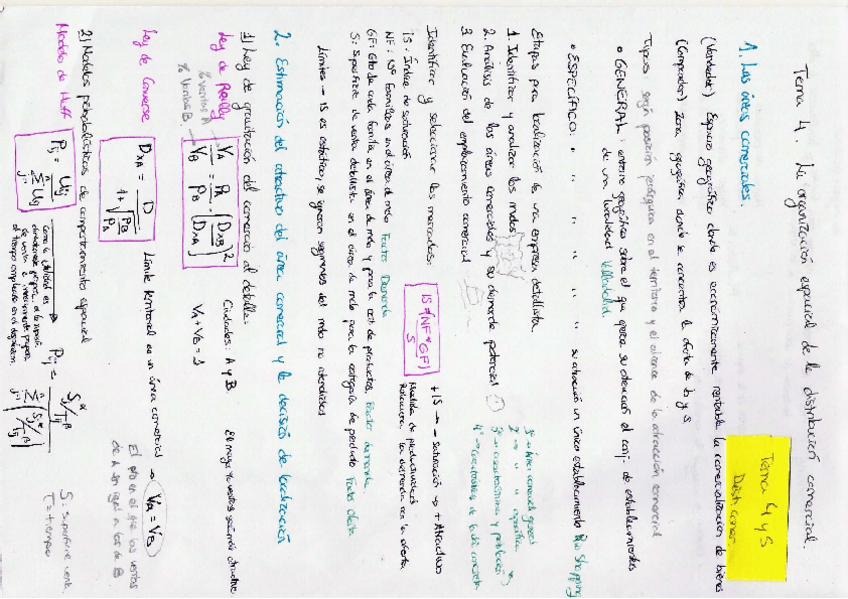 Tema 4. La organización espacial de la distribución comercial.
Tema 4 y 5
Distr. Comer.
1. Las áreas comerciales.
(Vendedor) Espacio geográfico donde es económicamente rentable la comercialización de bienes
(Comprador) Zona geográfica donde se concentra la oferta de b y s
Tipos según posición jerárquica en el territorio y el alcance de la atracción comercial
• GENERAL: entorno geográfico sobre el que ejerce su atracción el conj. de establecimientos
de una localidad Valladolid
• ESPECÍFICO: " " " " " " su atracción un único establecimiento Rio Shopping
Etapas para localización de una empresa detallista
1. Identificar y analizar los mdos
2. Análisis de las áreas comerciales y su demanda potencial
3. Evaluación del emplazamiento comercial
1º → área comercial general
2º → " " específica
3º →
4º → características de la
Identificar y seleccionar los mercados:
IS = (NF * GF) / S
+ IS → - saturación → + Atractivo
Medida de productividad
Relaciona la demanda con la oferta
IS: Índice de saturación
NF: Nº familias en el área de mdo Factor Demanda
GF: Gto de cada familia en el área de mdo y para la cat. de productos. Factor demanda.
S: Superficie de venta detallista en el área de mdo para la categoría de producto Factor oferta
Límites → IS es estático; se ignoran segmentos del mdo no atendidos
2. Estimación del atractivo del área comercial y la decisión de localización
1) Ley de gravitación del comercio al detalle:
Ley de Reilly
% Ventas A
% Ventas B.
VA / VB = PA / PB · (DxB / DxA)²
Ciudades: A y B.
VA + VB = 1
El mayor % ventas será más atractivo
Ley de Converse
DxA = D / (1 + √(PB / PA))
Límite territorial en un área comercial → VA = VB
El pto en el que las ventas
de A son igual a las de B
2) Modelos probabilísticos de comportamiento espacial
Modelo de Huff
Pij = Uij / Σ Uij
como la utilidad es
directamente propor. a la superf.
de venta e inversamente propor.
al tiempo empleado en el desplazam.
Pij = (Sj / Tij) / Σ (Sj / Tij)
S: superficie venta.
T = tiempo